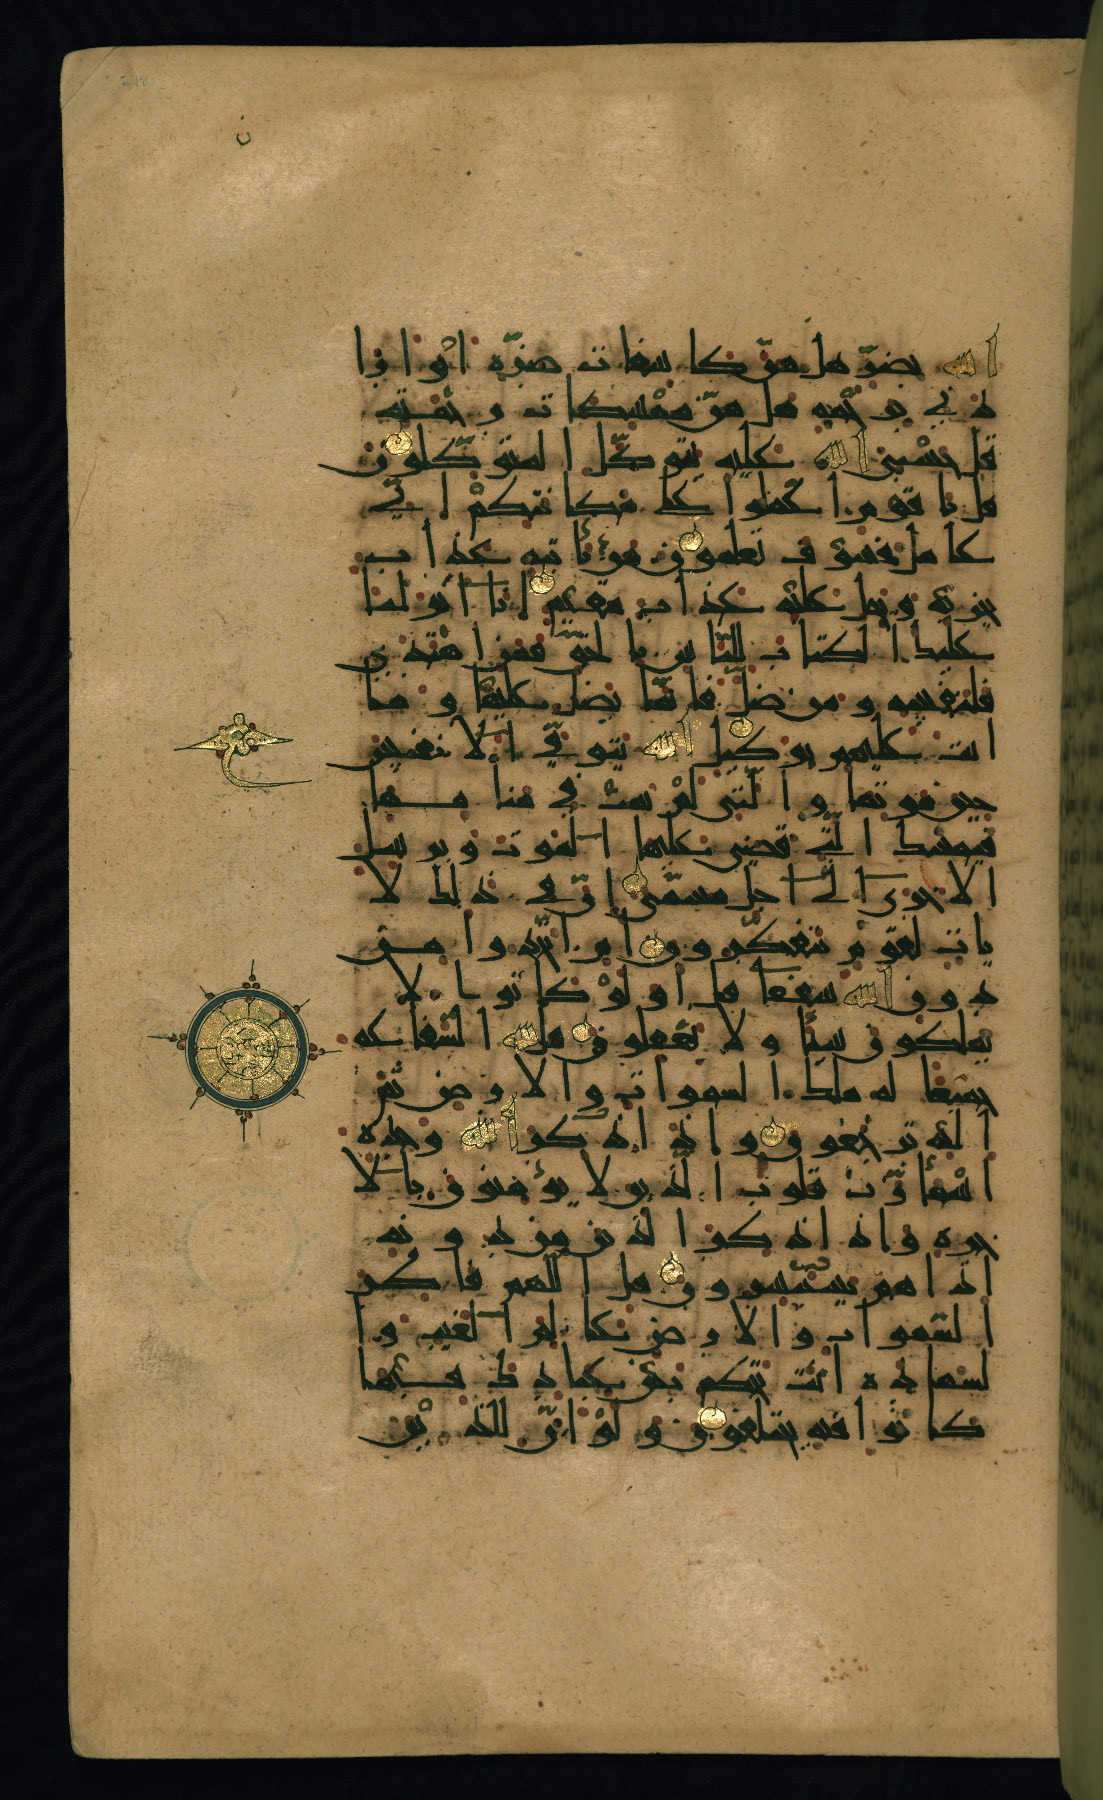 الله بضر هل هن كاشفات ضره او ارا
دني برحمه هل هن ممسكات رحمته
قل حسبي الله عليه يتوكل المتوكلون
قل يا قوم اعملوا على مكانتكم اني
عامل فسوف تعلمون من ياتيه عذاب
يخزيه ويحل عليه عذاب مقيم انا انزلنا
عليك الكتاب للناس بالحق فمن اهتدى
فلنفسه ومن ضل فانما يضل عليها وما
انت عليهم بوكيل الله يتوفى الانفس
حين موتها والتي لم تمت في منامها
فيمسك التي قضى عليها الموت ويرسل
الاخرى الى اجل مسمى ان في ذلك لا
يات لقوم يتفكرون ام اتخذوا من
دون الله شفعا قل اولو كانوا لا
يملكون شيئا ولا يعقلون قل لله الشفاعه
جميعا له ملك السموات والارض ثم
اليه ترجعون واذا ذكر الله وحده
اشمازت قلوب الذين لا يؤمنون بالا
خره واذا ذكر الذين من دونه
اذا هم يستبشرون قل اللهم فاطر
السموات والارض عالم الغيب وا
لشهاده انت تحكم بين عبادك فيما
كانوا فيه يختلفون ولو ان للذين